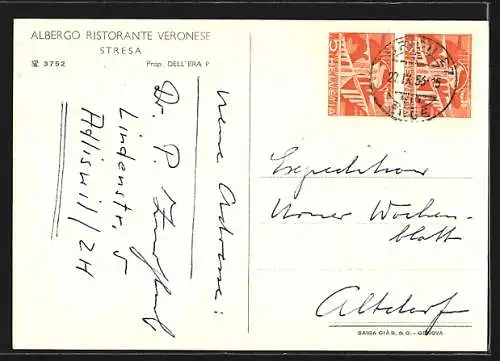 ALBERGO RISTORANTE VERONESE
STRESA
☏ 3752 Prop. DELL'ERA P
neue Adresse:
Dr. P.
Lindenstr. 5
Adliswil/ZH
5 HELVETIA
HELVETIA
Expedition
Urner Wochen-
blatt
Altdorf
SAIGA GIÀ B. & G. - GENOVA